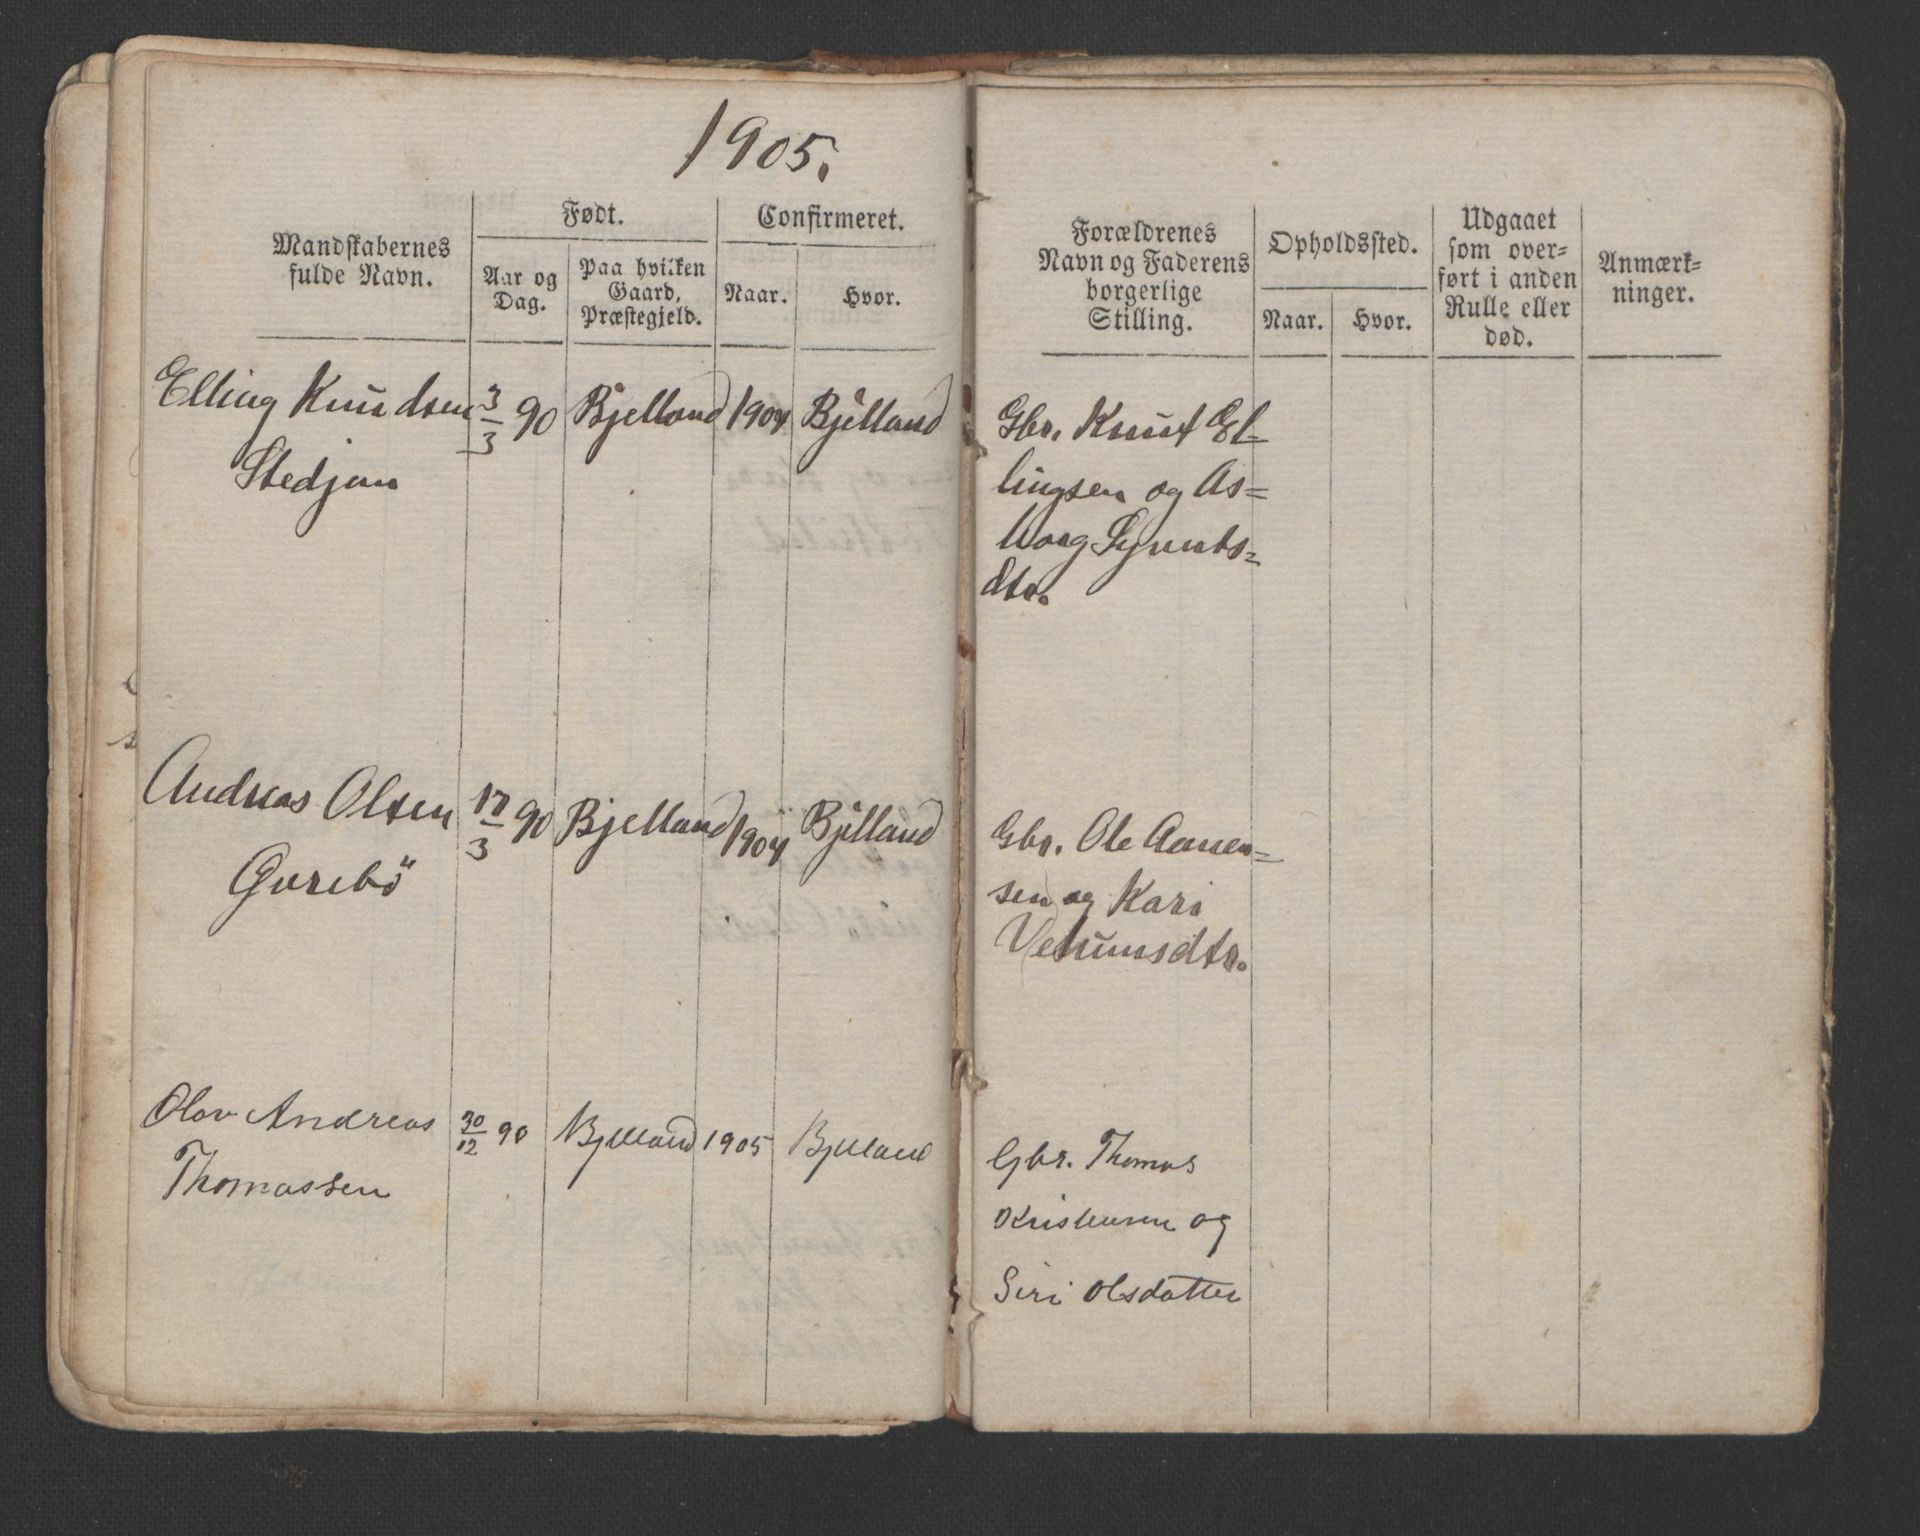 1905.
Mandskabernes
fulde Navn.
Født.
Aar og
Dag.
Paa hvilken
Gaard,
Præstegjeld.
Confirmeret.
Naar.
Hvor.
Forældrenes
Navn og Faderens
borgerlige
Stilling.
Opholdssted.
Naar.
Hvor.
Udgaaet
som over-
ført i anden
Rulle eller
død.
Anmærk-
ninger.
Elling Knudsen 3/3 90 Bjelland 1904 Bjelland
Stedjan
Gbr. Knut El-
lingsen og As-
borg Syvert­s-
dtr.
Andreas Olsen 17/3 90 Bjelland 1904 Bjelland
Gurebö
Gbr. Ole Aanen-
sen og Kari
dtr.
Olav Andreas 30/12 90 Bjelland 1905 Bjelland
Thomassen
Gbr. Thomas
Kristensen og
Siri Olsdatter